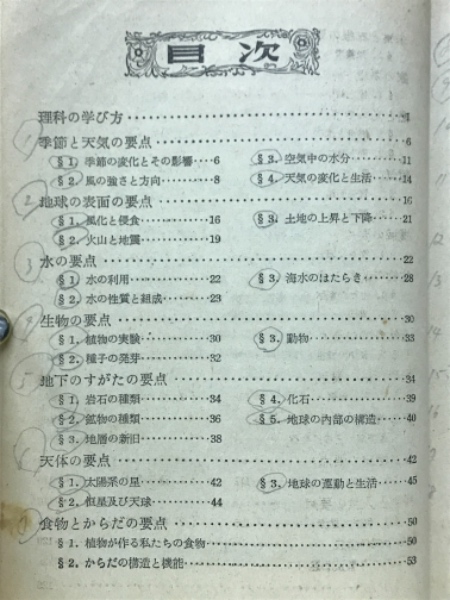 目次
理科の学び方……1
① 季節と天気の要点……6
§1. 季節の変化とその影響……6 §3. 空気中の水分……11
§2. 風の強さと方向……8 §4. 天気の変化と生活……14
② 地球の表面の要点……16
§1. 風化と侵食……16 §3. 土地の上昇と下降……21
§2. 火山と地震……19
③ 水の要点……22
§1. 水の利用……22 §3. 海水のはたらき……28
§2. 水の性質と組成……23
④ 生物の要点……30
§1. 植物の実験……30 §3. 動物……33
§2. 種子の発芽……32
⑤ 地下のすがたの要点……34
§1. 岩石の種類……34 §4. 化石……39
§2. 鉱物の種類……36 §5. 地球の内部の構造……40
§3. 地層の新旧……38
⑥ 天体の要点……42
§1. 太陽系の星……42 §3. 地球の運動と生活……45
§2. 恒星及び天球……44
⑦ 食物とからだの要点……50
§1. 植物が作る私たちの食物……50
§2. からだの構造と機能……53